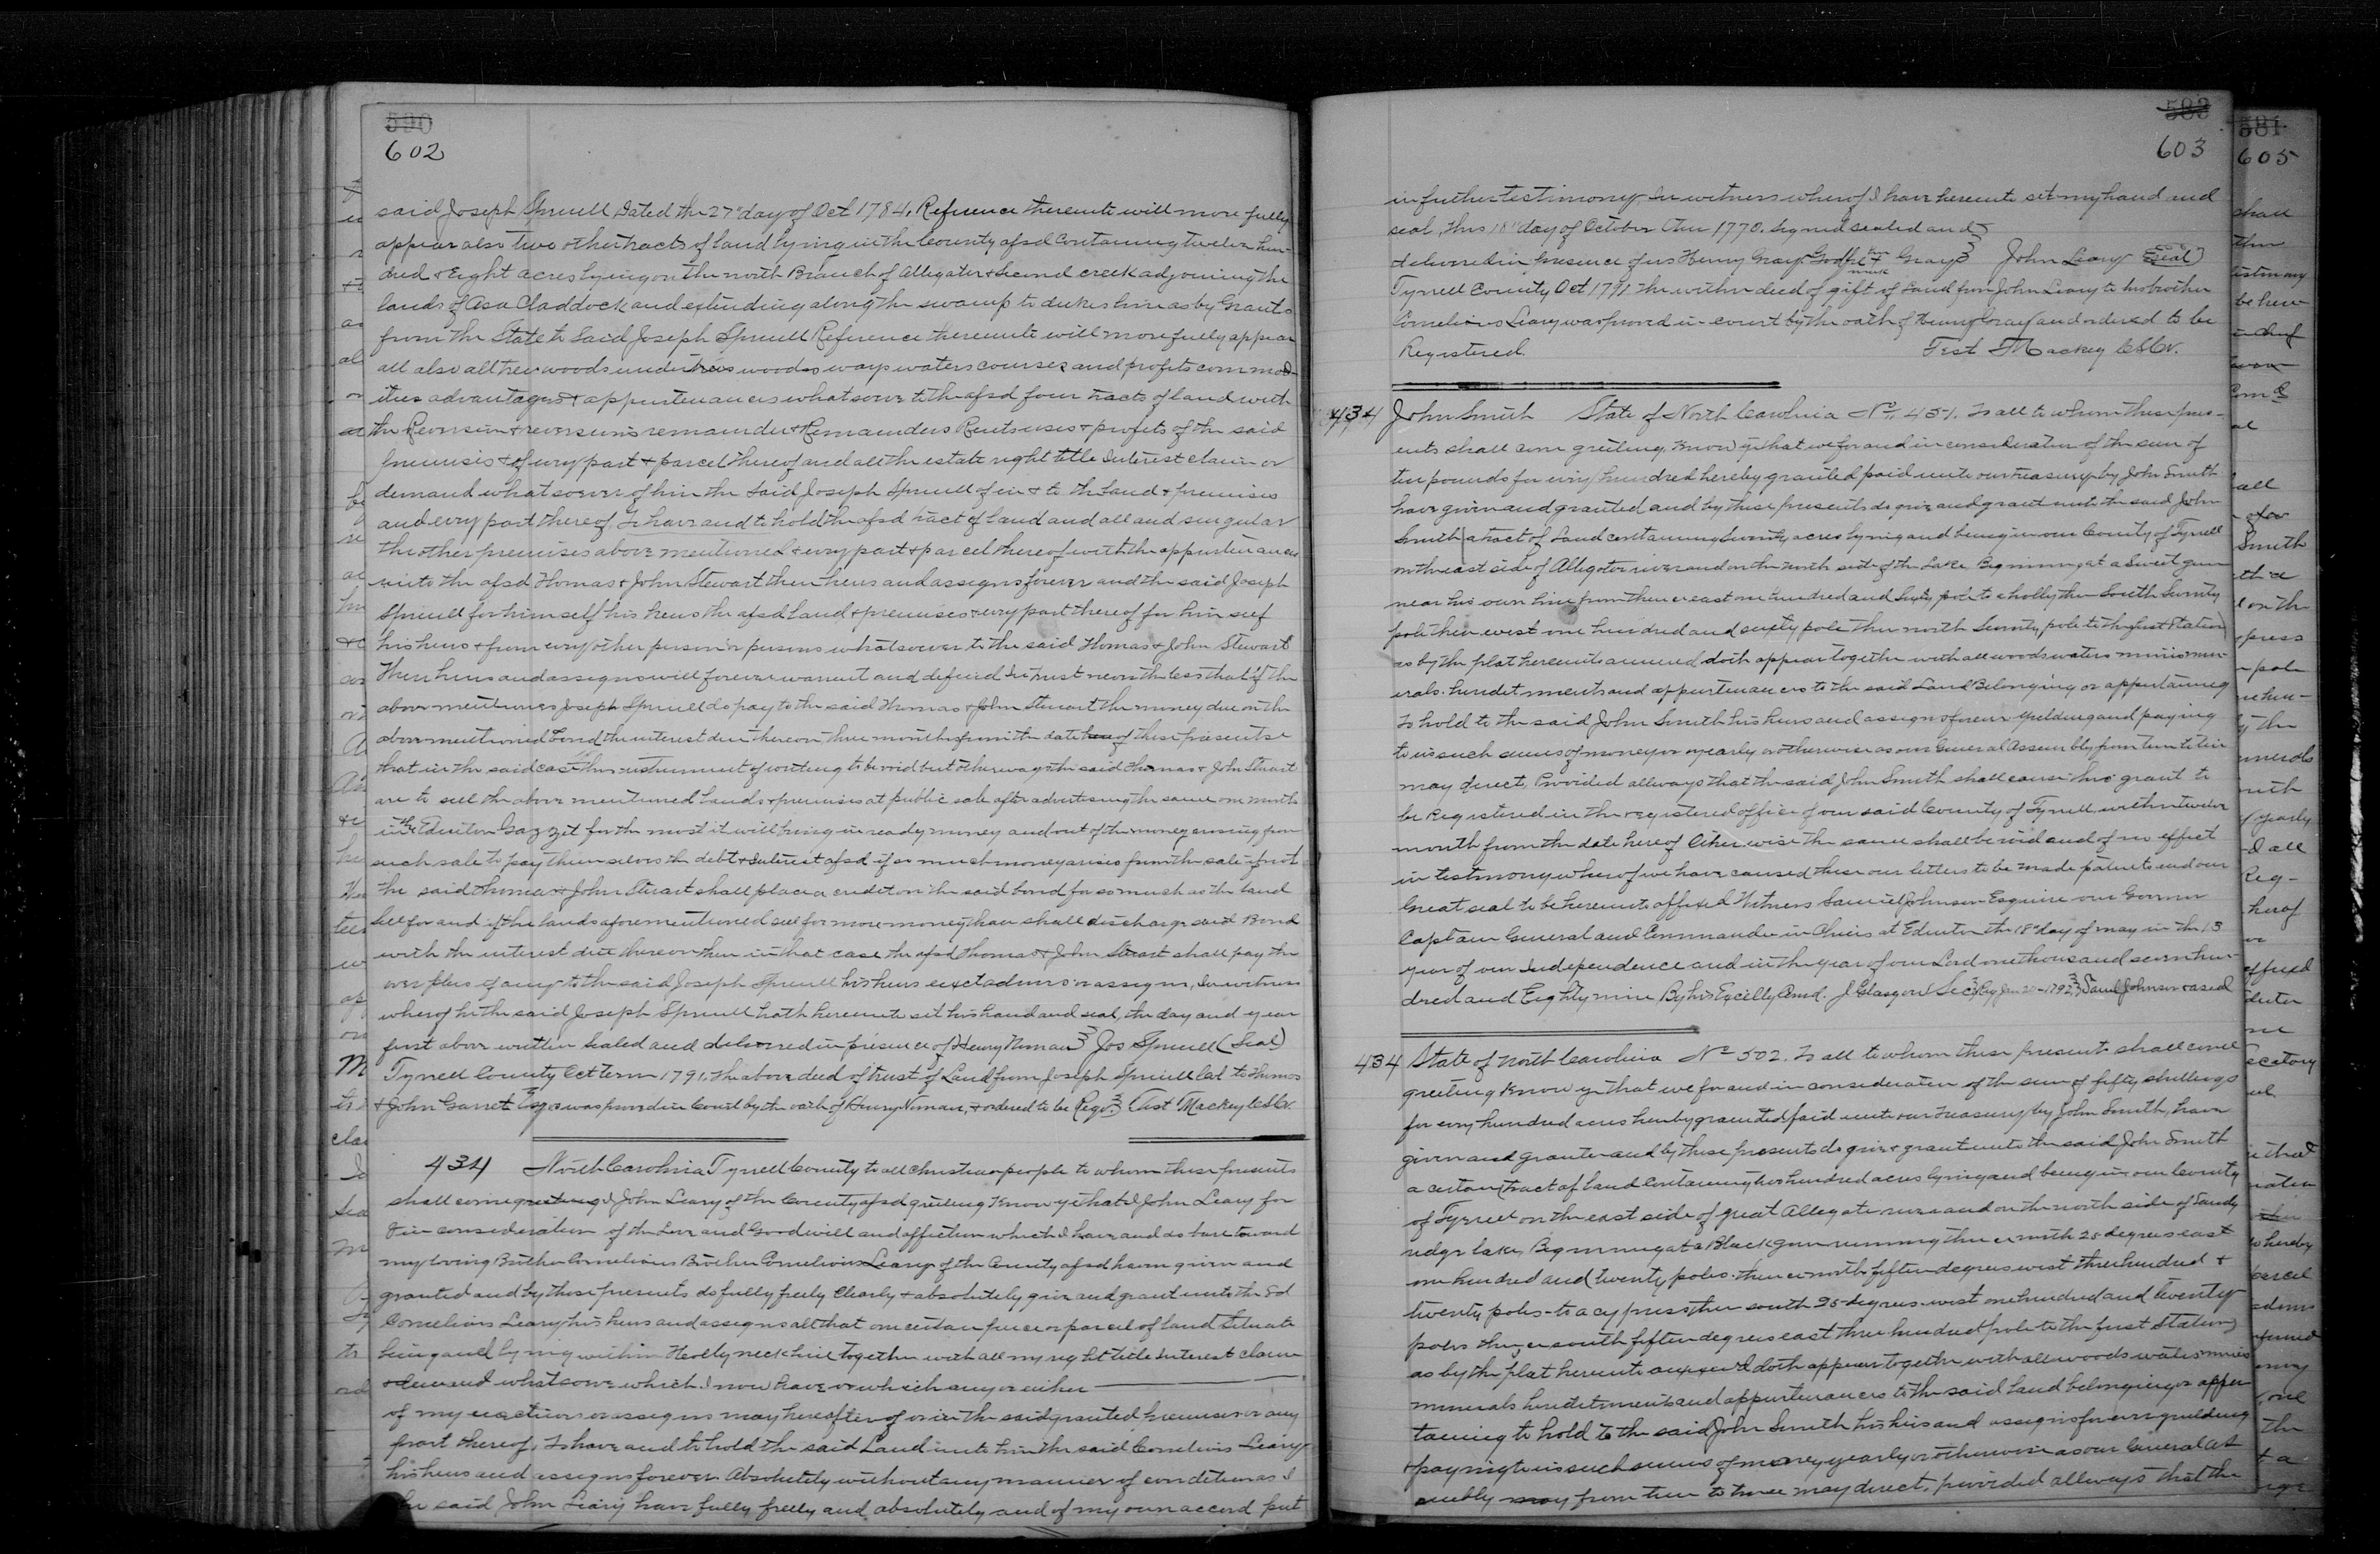 590
602
said Joseph Spruell Dated the 27" day of Oct 1784. Reference thereunto will more fully
appear also two other tracts of land lying in the County afsd Containing twelve hun-
dred & Eight acres lying on the north Branch of Alligator & Second creek adjoining the
lands of Asa Claddock and extending along the swamp to dukes line as by Grants
from the State to Said Joseph Spruell Reference thereunto will more fully appear
all also all the woods under woods ways waters courses and profits commod-
ities advantages & appurtenances whatsoever to the afsd four tracts of land with
the Reversion & reversions remainder & Remainders Rents uses & profits of the said
premises & of every part & parcel thereof and all the estate right title Interest claim or
demand whatsoever of him the Said Joseph Spruell of in & to the Land & premises
and every part thereof. To have and to hold the afsd tract of land and all and singular
the other premises above mentioned & every part & parcel thereof with the appurtenances
unto the afsd Thomas & John Stewart their heirs and assigns forever and the said Joseph
Spruell for himself his heirs the afsd Land & premises & every part thereof for him self
his heirs & from every other person or persons whatsoever to the said Thomas & John Stewart
Their heirs and assigns will forever warrent and defend In trust nevertheless that if the
above mentioned Joseph Spruell do pay to the said Thomas & John Stewart the money due on the
above mentioned bond the interest due thereon three months from the date of these presents
that in the said case this instrument of writing to be void but otherways the said Thomas & John Stuart
are to sell the above mentioned Lands & premises at public sale after advertising the same one month
in the Edenton Gazzet for the most it will bring in ready money and out of the money arising from
such sale to pay themselves the debt & Interest afsd if so much money arises from the sale if not
the said Thomas & John Stuart shall place a credit on the said bond for so much as the land
sell for and if the lands aforementioned sell for more money than shall discharge said Bond
with the interest due thereon then in that case the afsd Thomas & John Stuart shall pay the
over plus if any to the said Joseph Spruell his heirs exectadmrs or assigns, In witness
whereof he the said Joseph Spruell hath hereunto set his hand and seal, the day and year
first above written Sealed and delivered in presence of Henry Norman } Jos Spruell (Seal)
Tyrrell County Oct term 1791. The above deed of trust of Land from Joseph Spruell to Thomas
& John Garret Esqrs was proved in Court by the oath of Henry Norman, & ordered to be Regd. } Test Mackey ClsCr.
434 North Carolina Tyrrell County to all christian people to whom these presents
shall come greeting I John Leary of the County afsd greeting Know ye that I John Leary for
& in consideration of the Love and Good will and affection which I have and do bare toward
my loving Brother Cornelious Brother Cornelious Leary of the County afsd have given and
granted and by these presents do fully freely Clearly & absolutely give and grant unto the Sd
Cornelious Leary his heirs and assigns all that one certain piece or parcel of land Situate
being and lying within Holly neck line together with all my right title Interest claim
& demand whatsoever which I now have or which any or either
of my or assigns may hereafter of or in the said granted premises or any
part thereof, To have and to hold the said Land unto him the said Cornelius Leary
his heirs and assigns forever Absolutely without any manner of condition as I
the said John Leary have fully freely and absolutely and of my own accord put
583
603
in further testimony In witness whereof I have hereunto set my hand and
seal this 18" day of October Ann 1770. Signed sealed and }
& delivered in presence of us Henry Gray. + Gray } John Leary (Seal)
mark
Tyrrell County Oct 1791 the within deed of gift of Land from John Leary to his brother
Cornelious Leary was proved in court by the oath of Henry Gray and ordered to be
Registered. Test Mackey ClsCr.
434 John Smith State of North Carolina No. 451. To all to whom these pres-
ents shall come greeting. Know ye that we for and in consideration of the sum of
ten pounds for every hundred hereby granted paid unto our treasury by John Smith
have given and granted and by these presents do give and grant unto the said John
Smith a tract of Land containing Seventy acres lying and being in our County of Tyrrell
on the east side of Alligator river and on the north side of the Lake Beginning at a Sweet gum
near his own line from thence east one hundred and Sixty pole to a holly then South Seventy
pole then west one hundred and sixty pole then north Seventy pole to the first Station
as by the plat hereunto annexed doth appear together with all woods waters mines min-
erals. heredetments and appurtenances to the said Land Belonging or appertaining
To hold to the said John Smith his heirs and assigns forever yielding and paying
to us such sums of money or yearly or otherwise as our General Assembly from time to time
may direct, Provided allways that the said John Smith shall cause this grant to
be Registered in the registered office of our said County of Tyrrell within twelve
month from the date hereof Otherwise the same shall be void and of no effect
in testimony whereof we have caused these our letters to be made patents and our
Great seal to be hereunto affixed Witness Samuel Johnson Esquire our Governor
Captain General and Commander in Chief at Edenton the 18" day of may in the 13
year of our Independence and in the year of our Lord one thousand seven hun-
dred and Eighty nine By his Excelly Comd. J Glasgow Sec } Reg Jan 20-1792 } Saml Johnson
434 State of North Carolina No 502. To all to whom these present shall come
greeting Know ye that we for and in consideration of the sum of fifty shillings
for every hundred acres hereby granted paid unto our Treasury by John Smith, have
given and granted and by these presents do give & grant unto the said John Smith
a certain tract of land Containing two hundred acres lying and being in our County
of Tyrrell on the east side of great Allegator river and on the north side of Sandy
ridge lake, Beginning at a Black gum running thence north 25 degrees east
one hundred and twenty poles. thence north fifteen degrees west three hundred &
twenty poles to a cypress then south 25 degrees west one hundred and twenty
poles thence south fifteen degrees east three hundred pole to the first Station
as by the plat hereunto annexed doth appear together with all woods waters mines
minerals heredetments and appurtenances to the said land belonging or apper
taining to hold to the said John Smith his heirs and assigns forever yielding
& paying to us such sums of money yearly or otherwise as our General As
sembly may from time to time may direct. provided allways that the
581
605